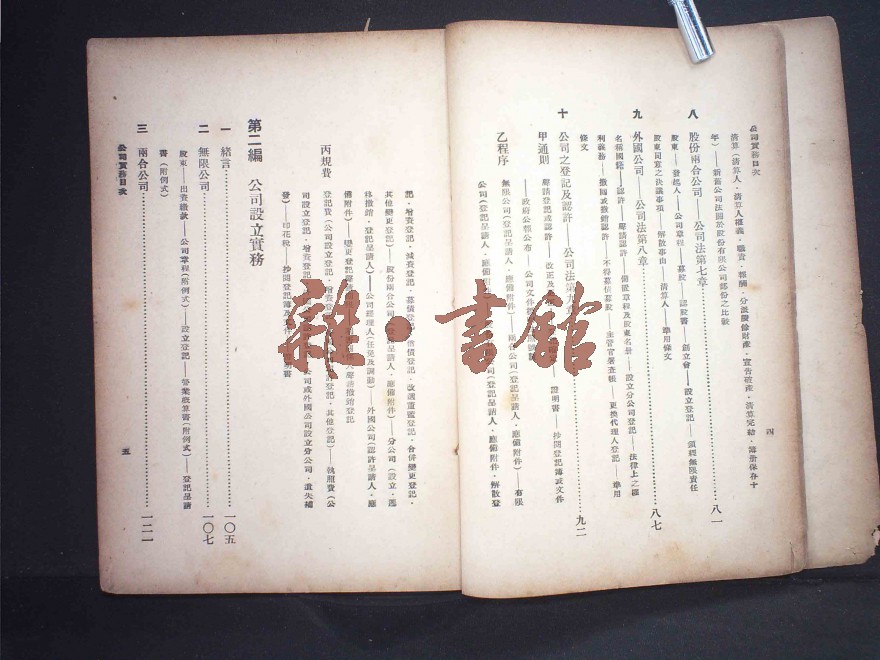 公司實務目次
四
清算（清算人．清算人權義．職責．報酬．分派賸餘財產．宣告破產．清算完結．簿册保存十
年）——新舊公司法關於股份有限公司部份之比較
八 股份兩合公司——公司法第七章 八一
股東——發起人——公司章程——募股——認股書——創立會——設立登記——須經無限責任
股東同意之決議事項——解散事由——清算人——準用條文
九 外國公司——公司法第八章 八七
名稱國籍——認許——聲請認許——備置章程及股東名册——設立分公司登記——法律上之權
利義務——撤回或撤銷認許——不得募債募股——主管官署查帳——更換代理人登記——準用
條文
十 公司之登記及認許——公司法第九章 九二
甲 通則
聲請登記或認許——改正及 證明書——抄閱登記簿或文件
——政府公報公布——公司文件
乙 程序
無限公司（登記呈請人．應備附件）——兩合公司（登記呈請人．應備附件）——有限
公司（登記呈請人．應備附件） 登記呈請人．應備附件．解散登
記．增資登記．減資登記．募債登記．償債登記．改選董監登記．合併變更登記．
其他變更登記）——股份兩合公司 呈請人．應備附件）——分公司（設立．遷
移撤銷．登記呈請人）——公司經理人（任免及調動）——外國公司（認許呈請人．應
備附件）——變更登記 聲請撤銷登記
丙 規費
登記費（公司設立登記．增資登記 登記．其他登記）——執照費（公
司設立登記．增資登記 公司或外國公司設立分公司．遺失補
發）——印花稅——抄閱登記簿及文件 證明書
第二編 公司設立實務
一 緒言 一〇五
二 無限公司 一〇七
股東——出資繳款——公司章程（附例式）——設立登記——營業概算書（附例式）——登記呈請
書（附例式）
三 兩合公司 一二一
公司實務目次
五
雜·書館